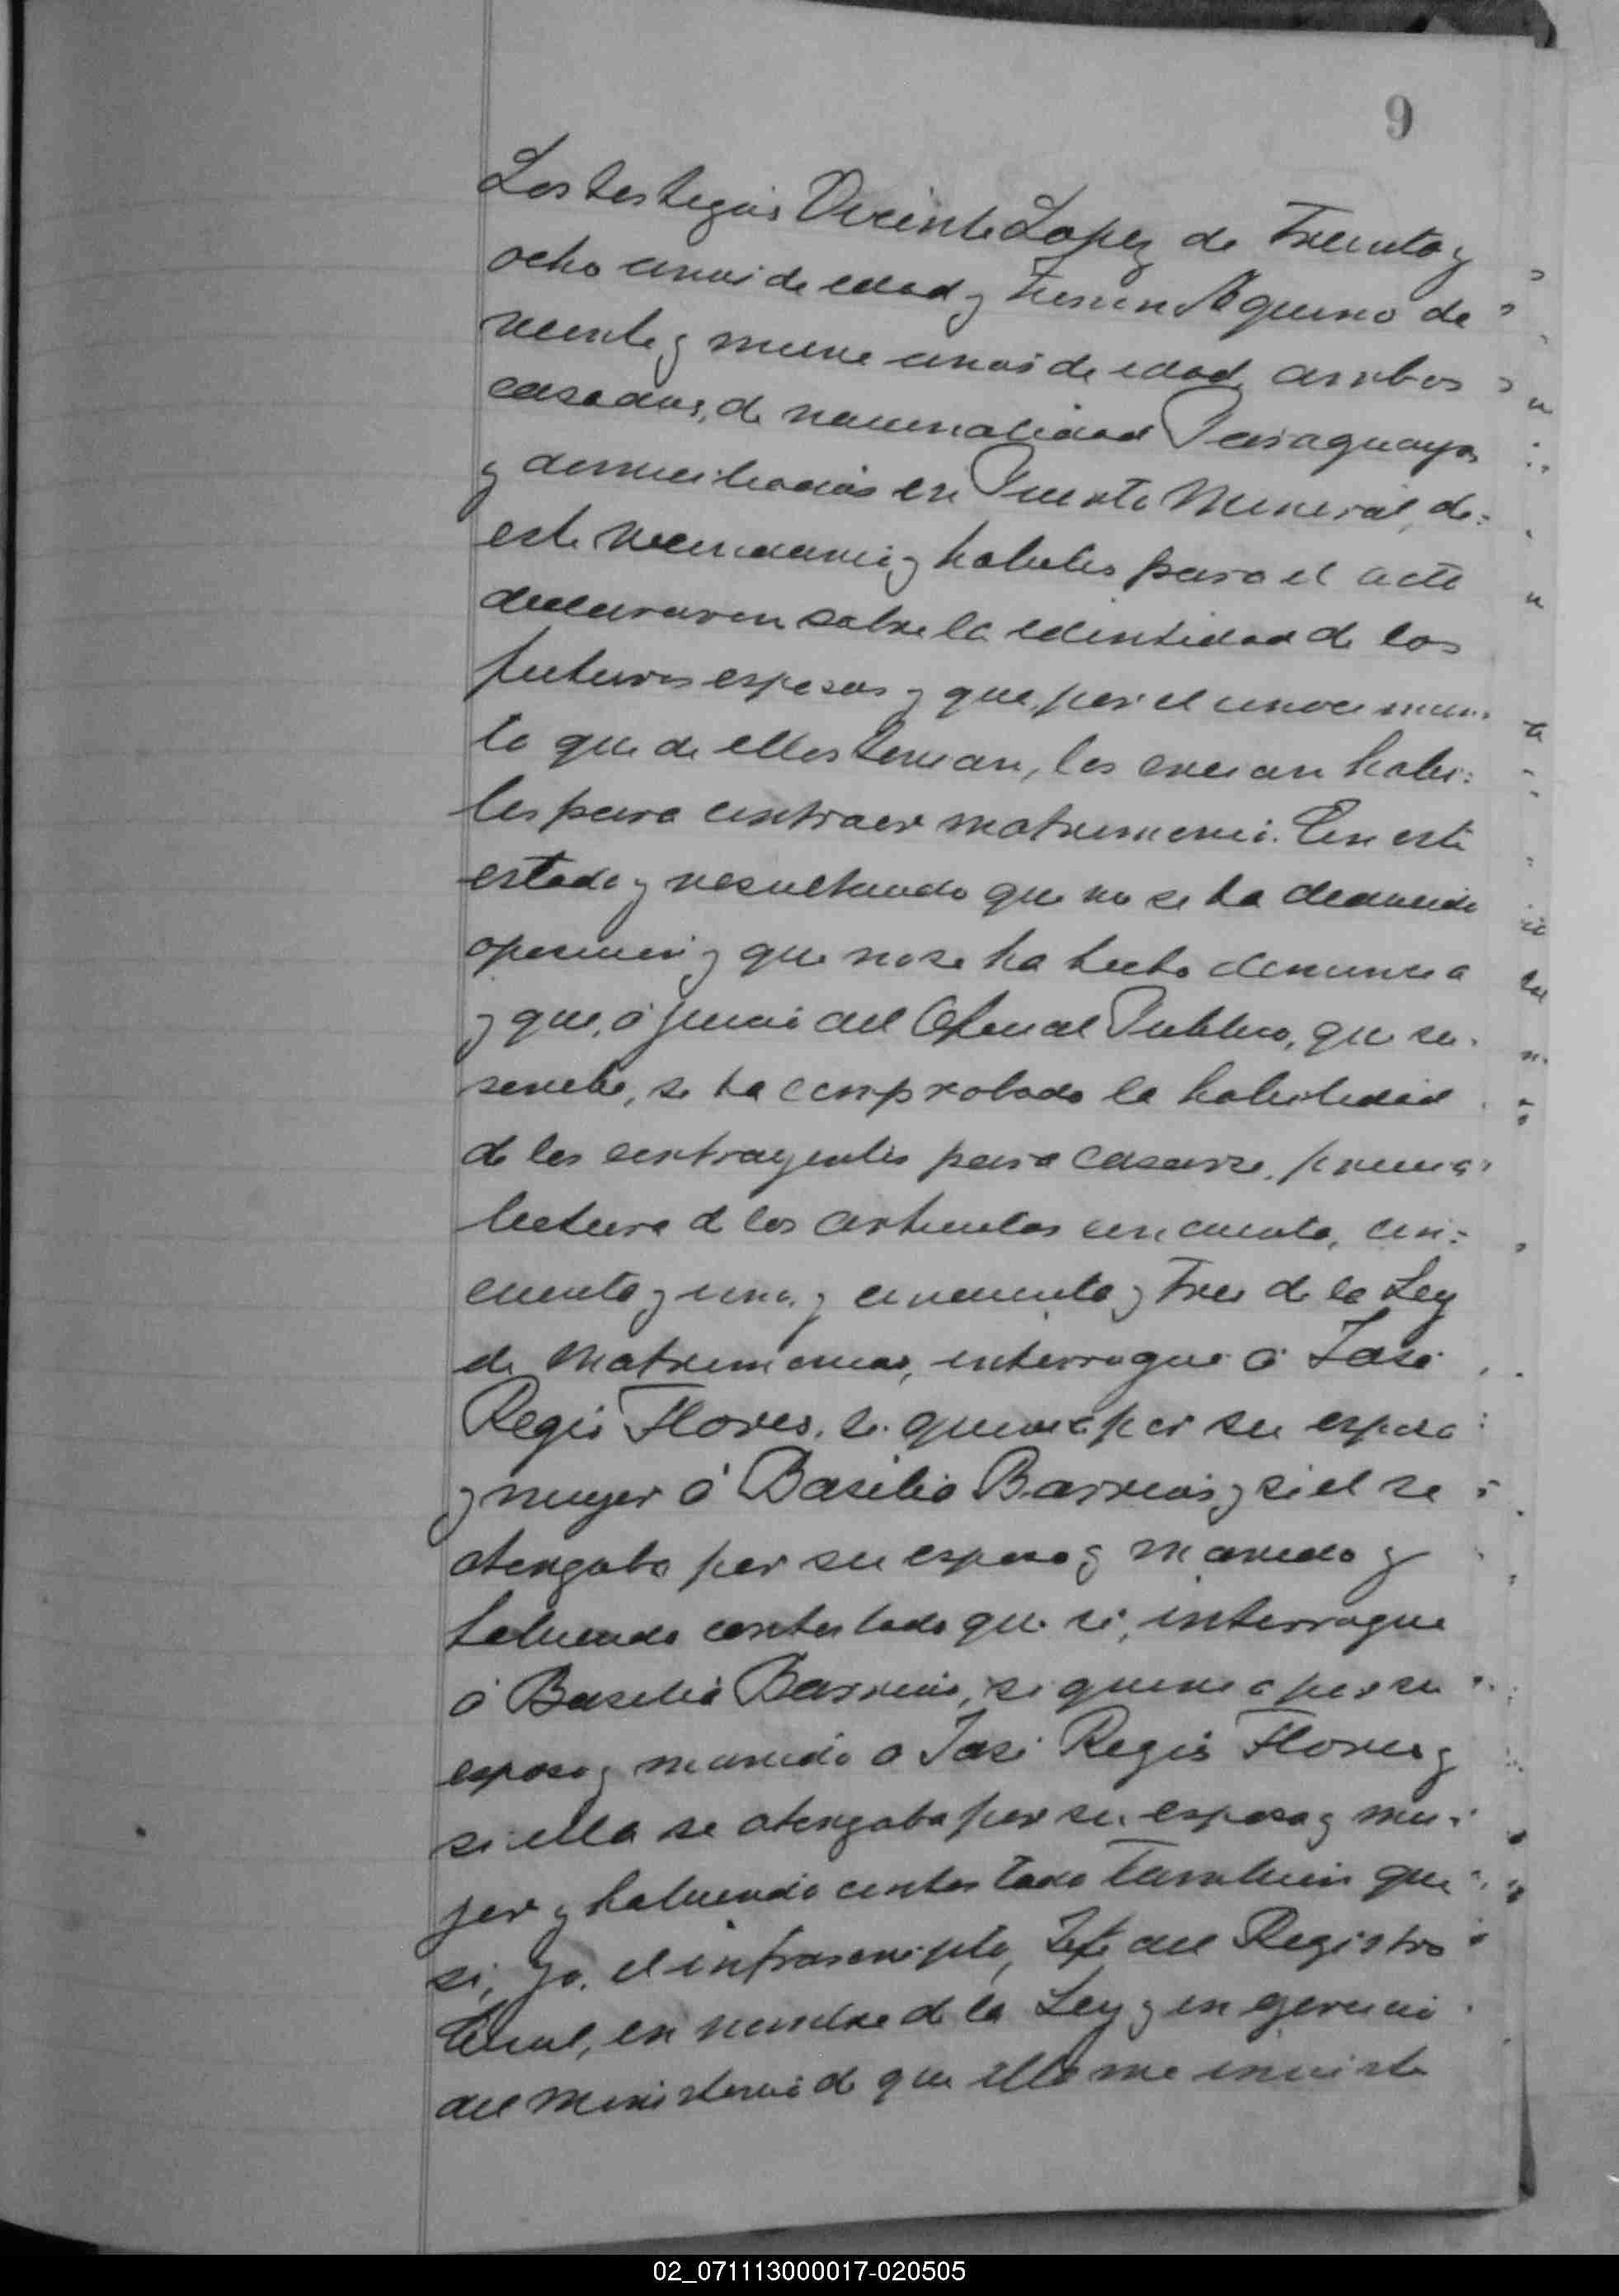 9
Los testigos Vicente Lopez de Treinta y
ocho anos de edad y Fermin Aquino de
veinte y nueve anos de edad, ambos
casados, de nacionalidad Paraguaya
y domiciliados en Puerto Mineral, de
este vecindario y habiles para el acto
declararon sobre la identidad de los
futuros esposos y que, por el conocimien
to que de ellos tenian, los creian habi:
les para contraer matrimonio. En este
estado y resultando que no se ha deducido
oposicion y que no se ha hecho denuncia
y que, á juicio del Oficial Publico, que su.
scribe, se ha comprobado la habilidad
de los contrayentes para casarse, previa
lectura de los articulos cincuenta, cin:
cuenta y uno, y cincuenta y Tres de la Ley
de Matrimonios, interrogué á José
Regis Flores, si queria por su esposa
y muger á Basilia Barrios y si él se
otorgaba por su esposo y marido y
habiendo contestado que si, interrogue
á Basilia Barrios, si queria por su
esposo y marido a José Regis Flores y
si ella se otorgaba por su esposa y mu:
jer y habiendo contestado Tambien que
si, Yo. el infrascripto, Jefe del Registro
Civil, en nombre de la Ley y en egercicio
del Ministerio de que ella me inviste
02_071113000017-020505